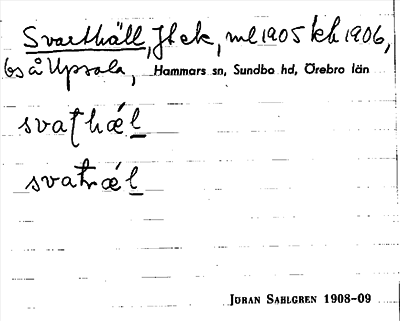 Svarthäll, Hek, ml 1905 kh 1906,
bs å Upsala, Hammars sn, Sundbo hd, Örebro län
svaꞎhǽl
svatrǽl
JÖRAN SAHLGREN 1908-09